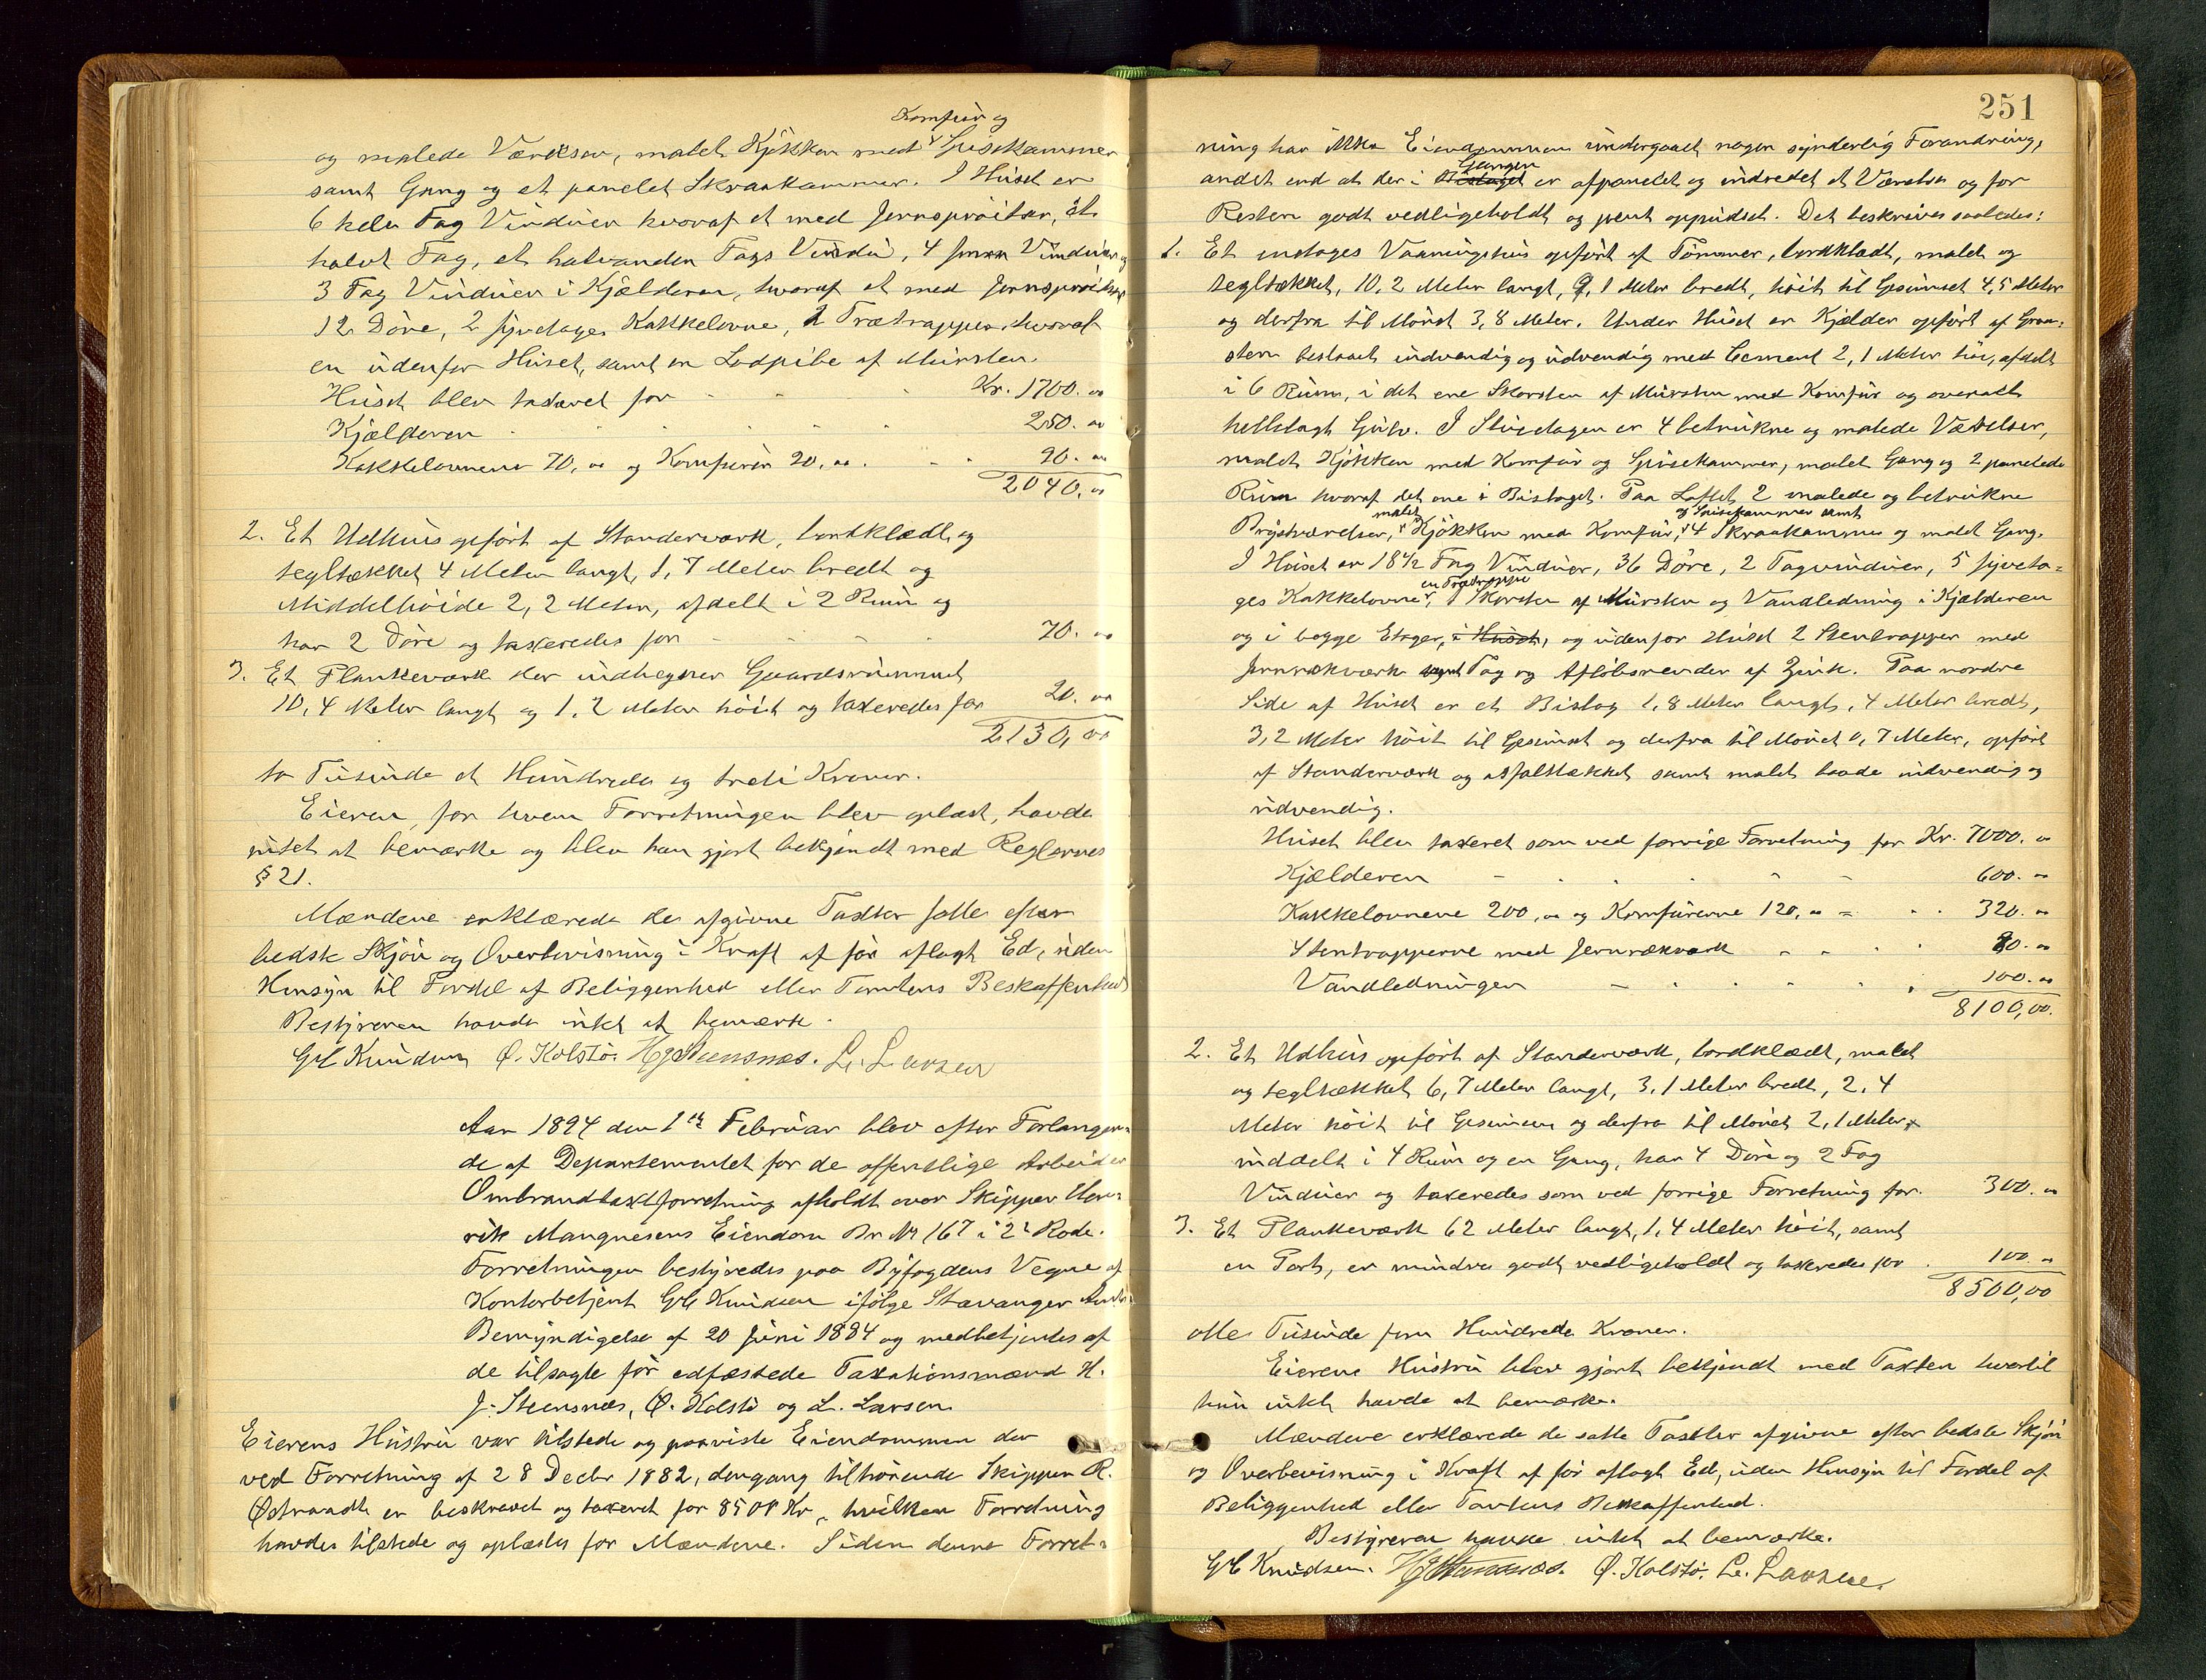 Komfur og
og malede Værelser, malet Kjøkken med Spisekammer
samt Gang og et panelet Skraakammer. I Huset er
6 hele Fag Vinduer hvoraf et med Jernsproiter, et
halvt Fag, et halvanden Fags Vindu, 4 smaa Vinduer og
3 Fag Vinduer i Kjælderen, hvoraf et med Jernsproiter
12 Døre, 2 Kakkelovne, 2 Trætrapper, hvoraf
en udenfor Huset, samt en Lodpibe af Mursten.
Huset blev taxeret for Kr. 1700. 00
Kjælderen 250. 00
Kakkelovnene 70, 00 og Komfuren 20, 00. 90. 00
2040. 00
2. Et Udhus opført af Standerværk, bordklædt, og
tegltækket 4 Meter langt, 1,7 Meter bredt og
Middelhøide 2,2 Meter, afdelt i 2 Rum og
har 2 Døre og taxeredes for 70. 00
3. Et Plankeværk der indhegner Gaardsrummet
10,4 Meter langt og 1,2 Meter høit og taxeredes for 20. 00
2130, 00
to Tusinde et Hundrede og treti Kroner.
Eieren, for hvem Forretningen blev oplæst, havde
intet at bemærke og blev han gjort bekjendt med Reglernes
§ 21.
Mændene erklærede de afgivne Taxter satte efter
bedste Skjøn og Overbevisning i Kraft af før aflagt Ed, uden
Hensyn til Fordel af Beliggenhed eller Tomtens Beskaffenhed
Bestyreren havde intet at bemærke.
Knudsen Ø. Kolstø. HJSteensnæs. L. Larsen
Aar 1894 den 1ste Februar blev efter Forlangen-
de af Departementet for de offentlige Arbeider
Ombrandtaxtforretning afholdt over Skipper Hen-
rik Mangnesens Eiendom Br. No 167 i 2. Rode.
Forretningen bestyredes paa Byfogdens Vegne af
Kontorbetjent Knudsen ifølge Stavanger Amts
Bemyndigelse af 20 Juni 1884 og medbetjentes af
de tilsagte før edfæstede Taxationsmænd H.
J. Steensnæs, Ø. Kolstø og L. Larsen.
Eierens Hustru var tilstede og paaviste Eiendommen der
ved Forretning af 28 Decbr 1882, dengang tilhørende Skipper R.
Østraadt er beskrevet og taxeret for 8500 Kr, hvilken Forretning
havdes tilstede og oplæstes for Mændene. Siden denne Forret-
251
ning har ikke Eiendommen undergaaet nogen synderlig Forandring,
Gangen
andet end at der i Bislaget er afpanelet og indredet et Værelse og for
Resten godt vedligeholdt og pent oppudset. Det beskrives saaledes:
1. Et etages Vaaningshus opført af Tømmer, bordklædt, malet og
tegltækket, 10,2 Meter langt, 9,1 Meter bredt, høit til Gesimset 4,5 Meter
og derfra til Mønet 3,8 Meter. Under Huset er Kjælder opført af Graa-
sten beslaaet indvendig og udvendig med Cement 2,1 Meter høi, afdelt
i 6 Rum, i det ene Skorsten af Mursten med Komfur og overalt
hellelagt Gulv. I Stueetagen er 4 betrukne og malede Værelser,
malet Kjøkken med Komfur og Spisekammer, malet Gang og 2 panelede
Rum hvoraf det ene i Bislaget. Paa Loftet 2 malede og betrukne
malet og Spisekammer samt
Brystværelser, Kjøkken med Komfur, 4 Skraakammer og malet Gang.
I Huset er 18 1/2 Fag Vinduer, 36 Døre, 2 Tagvinduer, 5
en Trætrappe
ges Kakkelovne, 1 Skorsten af Mursten og Vandledning i Kjælderen
og i begge Etager, i Huset, og udenfor Huset 2 Stentrapper med
Jernrækværk samt Tag og Afløbsrender af Zink. Paa nordre
Side af Huset er et Bislag 1,8 Meter langt, 4 Meter bredt,
3,2 Meter høit til Gesimset og derfra til Mønet 0,7 Meter, opført
af Standerværk og asfalttækket samt malet baade indvendig og
udvendig.
Huset blev taxeret som ved forrige Forretning for Kr. 7000. 00
Kjælderen 600. 00
Kakkelovnene 200, 00 og Komfurerne 120, 00 320. 00
Stentrapperne med Jernrækværk 80. 00
Vandledningen 100. 00
8100, 00.
2. Et Udhus opført af Standerværk, bordklædt, malet
og tegltækket 6,7 Meter langt, 3,1 Meter bredt, 2,4
Meter høit til Gesimsen og derfra til Mønet 2,1 Meter,
inddelt i 4 Rum og en Gang, har 4 Døre og 2 Fag
Vinduer og taxeredes som ved forrige Forretning for. 300. 00
3. Et Plankeværk 62 Meter langt, 1,4 Meter høit, samt
en Port, er mindre godt vedligeholdt og taxeredes for 100. 00
8500, 00
otte Tusinde fem Hundrede Kroner.
Eierens Hustru blev gjort bekjendt med Taxten hvortil
hun intet havde at bemærke.
Mændene erklærede de satte Taxter afgivne efter bedste Skjøn
og Overbevisning i Kraft af før aflagt Ed, uden Hensyn til Fordel af
Beliggenhed eller Tomtens Beskaffenhed.
Bestyreren havde intet at bemærke.
Knudsen. HJSteensnæs. Ø. Kolstø. L. Larsen.